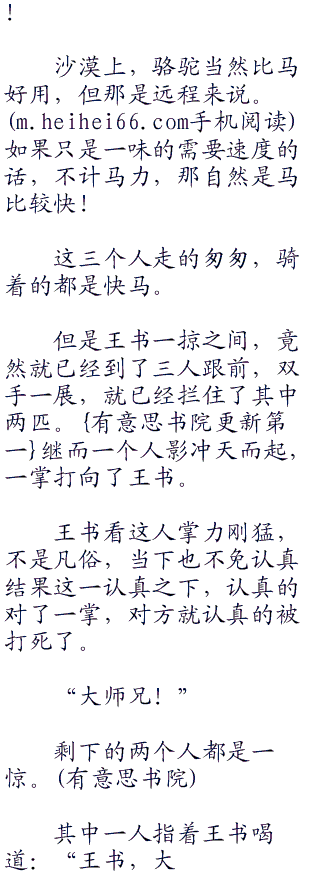 ！
沙漠上，骆驼当然比马
好用，但那是远程来说。
(m.heihei66.com手机阅读)
如果只是一味的需要速度的
话，不计马力，那自然是马
比较快！
这三个人走的匆匆，骑
着的都是快马。
但是王书一掠之间，竟
然就已经到了三人跟前，双
手一展，就已经拦住了其中
两匹。{有意思书院更新第
一}继而一个人影冲天而起，
一掌打向了王书。
王书看这人掌力刚猛，
不是凡俗，当下也不免认真
结果这一认真之下，认真的
对了一掌，对方就认真的被
打死了。
“大师兄！”
剩下的两个人都是一
惊。(有意思书院)
其中一人指着王书喝
道：“王书，大